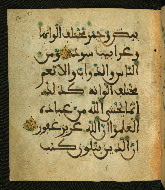 بيض وحمر مختلف الوانها
وغرابيب سود ومن
الناس والدواب والانعم
مختلف الوانه كذلك
انما يخشى الله من عباده
العلموا ان الله عزيز غفور
ان الذين يتلون كتب